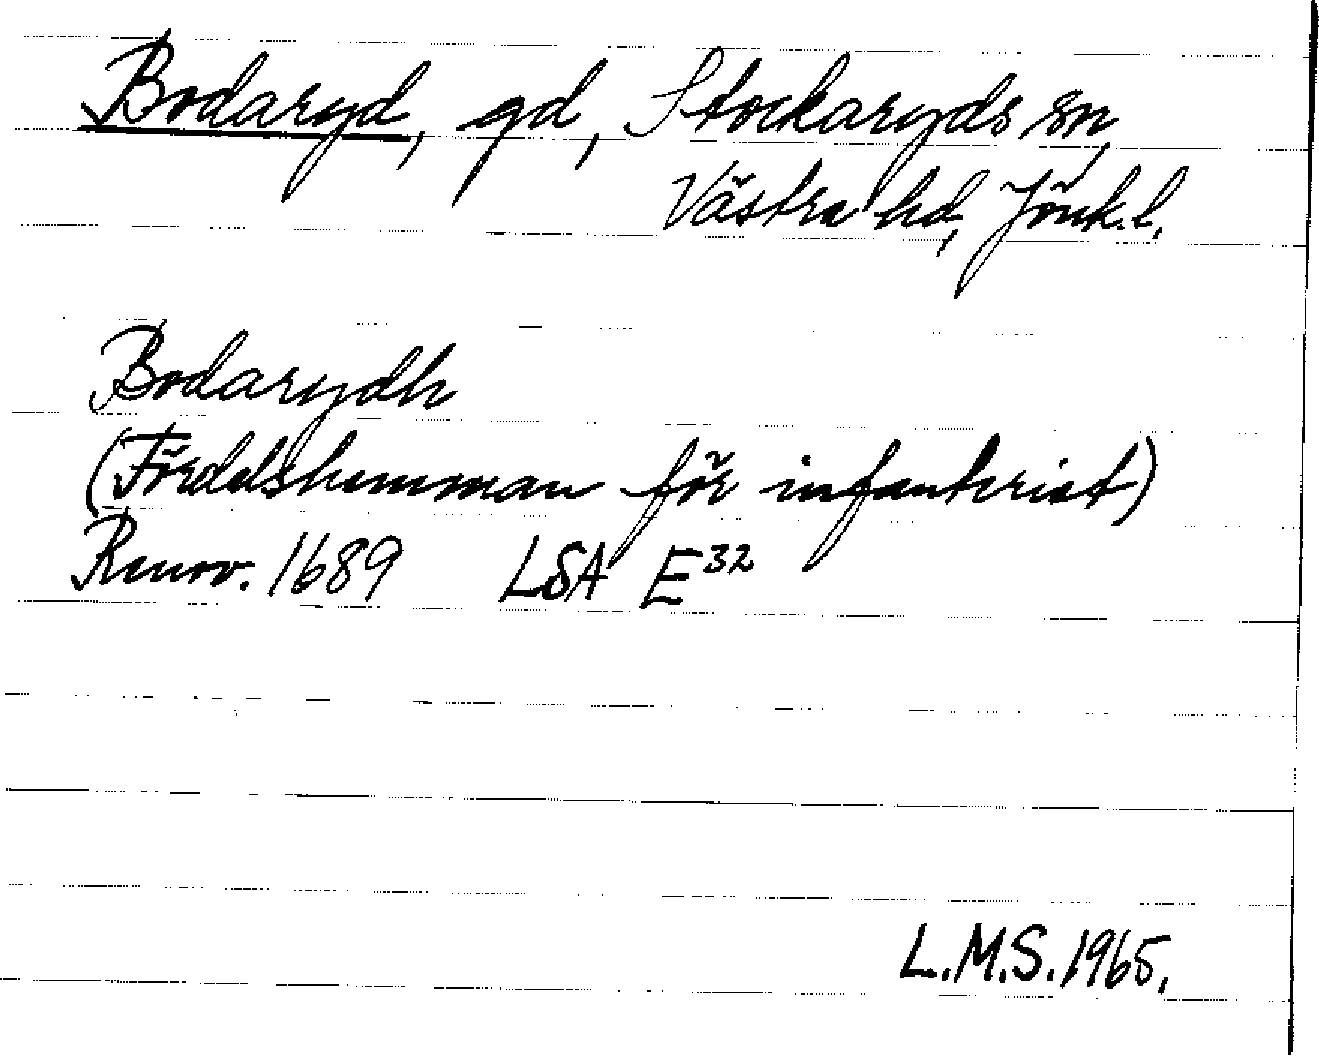 Bodaryd, gd, Stockaryds sn,
Västra hd, Jönk.l.
Bodarydh
(Fördelshemman för infanterist)
Renov. 1689 LSA E32
L.M.S. 1965.